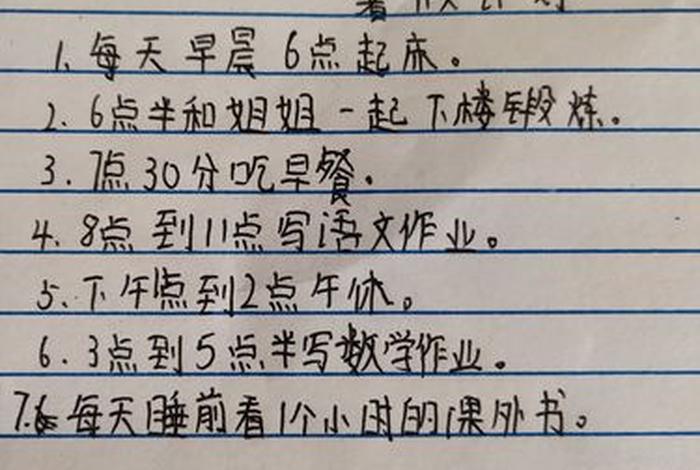 1、每天早晨6点起床。
2、6点半和姐姐一起下楼锻炼。
3.7点30分吃早餐。
4、8点到11点写语文作业。
5、下午1点到2点午休。
6.3点到5点半写数学作业。
7.每天睡前看1个小时的课外书。